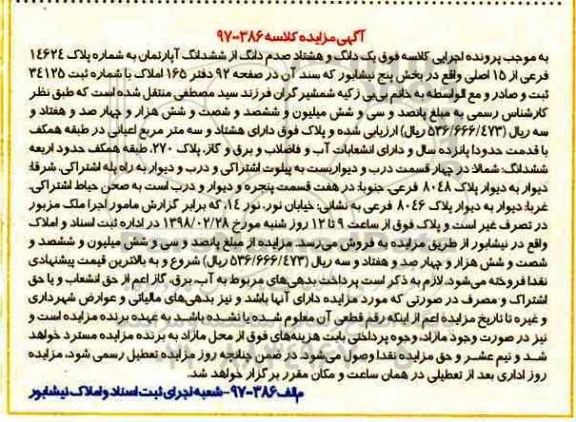 آگهی مزایده کلاسه ۳۸۶-۹۷
به موجب پرونده اجرایی کلاسه فوق یک دانگ و هشتاد صدم دانگ از ششدانگ آپارتمان به شماره پلاک ۱۴۶۲۴
فرعی از ۱۵ اصلی واقع در بخش پنج نیشابور که سند آن در صفحه ۹۲ دفتر ۱۶۵ املاک با شماره ثبت ۳۴۱۲۵
ثبت و صادر و مع الواسطه به خانم بی‌بی زکیه شمشیرگران فرزند سید مصطفی منتقل شده است که طبق نظر
کارشناس رسمی به مبلغ پانصد و سی و شش میلیون و ششصد و شصت و شش هزار و چهار صد و هفتاد و
سه ریال (۵۳۶/۶۶۶/۴۷۳ ریال) ارزیابی شده و پلاک فوق دارای هشتاد و سه متر مربع اعیانی در طبقه همکف
با قدمت حدودا پانزده سال و دارای انشعابات آب و فاضلاب و برق و گاز، پلاک ۲۷۰، طبقه همکف حدود اربعه
ششدانگ: شمالا: در چهار قسمت درب و دیواریست به پیلوت اشتراکی و درب و دیوار به راه پله اشتراکی، شرقا:
دیوار به دیوار پلاک ۸۰۴۸ فرعی، جنوبا: در هفت قسمت پنجره و دیوار و درب است به صحن حیاط اشتراکی،
غربا: دیوار به دیوار پلاک ۸۰۴۶ فرعی به نشانی: خیابان نور، نور ۱۴، که برابر گزارش مامور اجرا ملک مزبور
در تصرف غیر است و پلاک فوق از ساعت ۹ تا ۱۲ روز شنبه مورخ ۱۳۹۸/۰۲/۲۸ در اداره ثبت اسناد و املاک
واقع در نیشابور از طریق مزایده به فروش می‌رسد. مزایده از مبلغ پانصد و سی و شش میلیون و ششصد و
شصت و شش هزار و چهار صد و هفتاد و سه ریال (۵۳۶/۶۶۶/۴۷۳ ریال) شروع و به بالاترین قیمت پیشنهادی
نقدا فروخته می‌شود. لازم به ذکر است پرداخت بدهی‌های مربوط به آب، برق، گاز اعم از حق انشعاب و یا حق
اشتراک و مصرف در صورتی که مورد مزایده دارای آنها باشد و نیز بدهی‌های مالیاتی و عوارض شهرداری
و غیره تا تاریخ مزایده اعم از اینکه رقم قطعی آن معلوم شده یا نشده باشد به عهده برنده مزایده است و
نیز در صورت وجود مازاد، وجوه پرداختی بابت هزینه‌های فوق از محل مازاد به برنده مزایده مسترد خواهد
شد و نیم عشر و حق مزایده نقدا وصول می‌شود. در ضمن چنانچه روز مزایده تعطیل رسمی شود، مزایده
روز اداری بعد از تعطیلی در همان ساعت و مکان مقرر برگزار خواهد شد.
م الف ۳۸۶-۹۷ - شعبه اجرای ثبت اسناد و املاک نیشابور